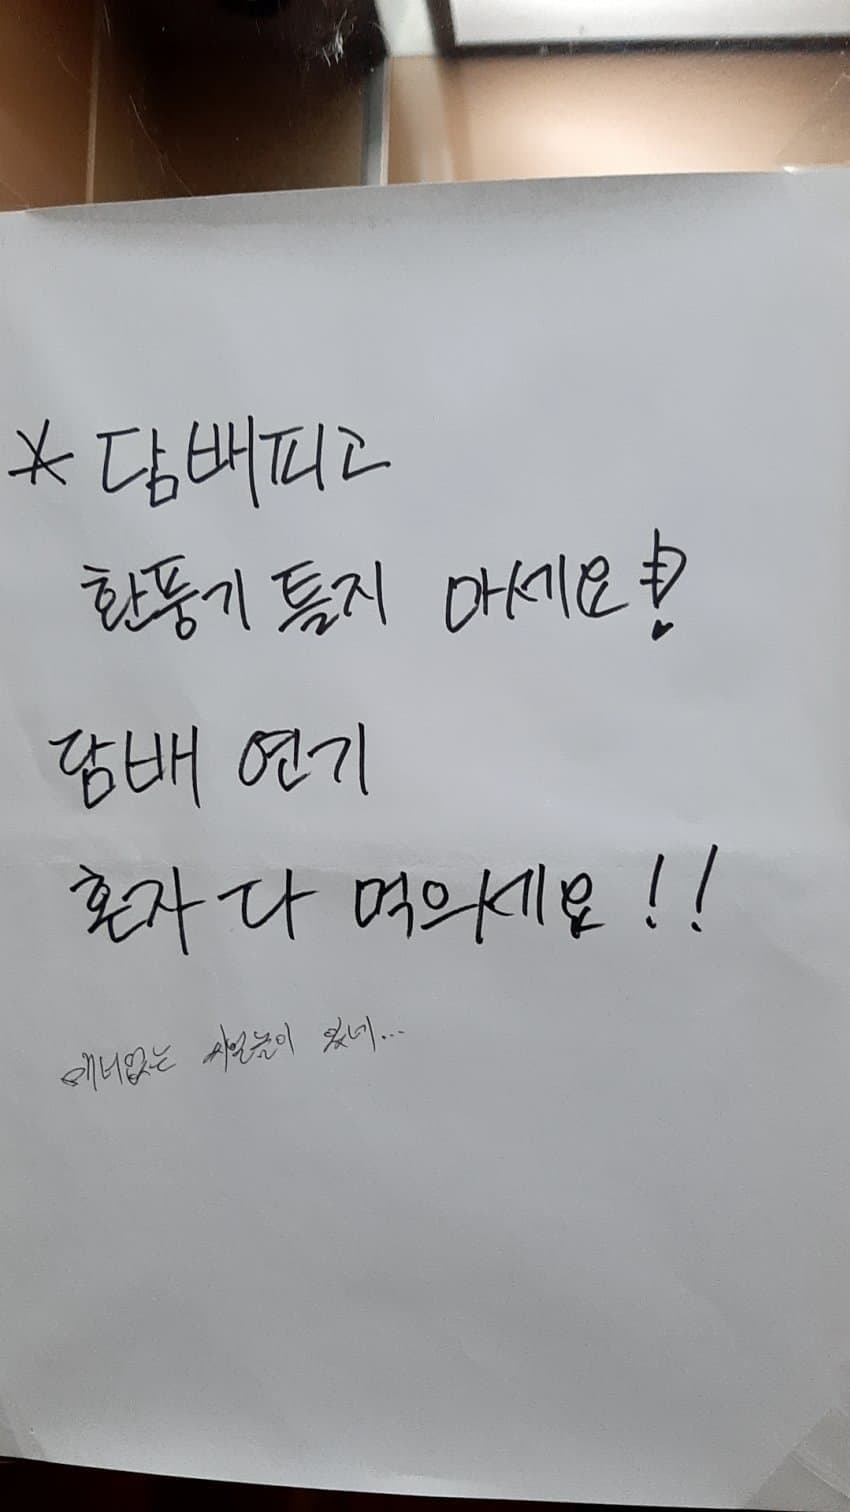 * 담배피고
환풍기 틀지 마세요!
담배 연기
혼자 다 먹으세요!!
매너없는 있네...